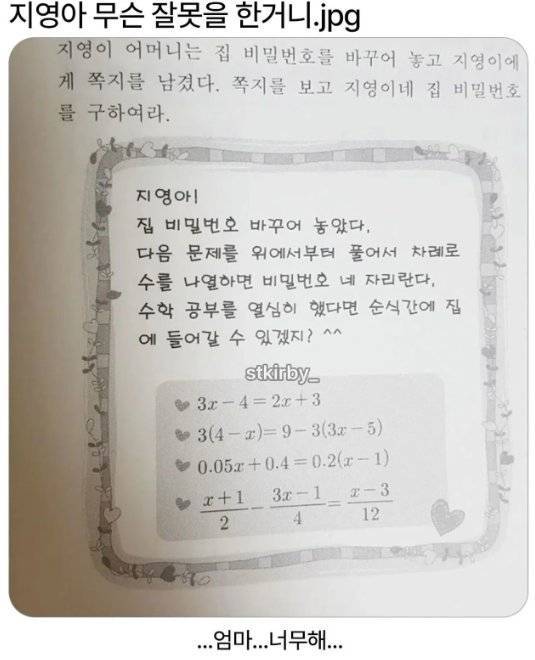 지영아 무슨 잘못을 한거니.jpg
지영이 어머니는 집 비밀번호를 바꾸어 놓고 지영이에
게 쪽지를 남겼다. 쪽지를 보고 지영이네 집 비밀번호
를 구하여라.
지영아!
집 비밀번호 바꾸어 놓았다.
다음 문제를 위에서부터 풀어서 차례로
수를 나열하면 비밀번호 네 자리란다.
수학 공부를 열심히 했다면 순식간에 집
에 들어갈 수 있겠지? ^^
stkirby_
3x-4=2x+3
3(4-x)=9-3(3x-5)
0.05x+0.4=0.2(x-1)
(x+1)/2-(3x-1)/4=(x-3)/12
...엄마...너무해...